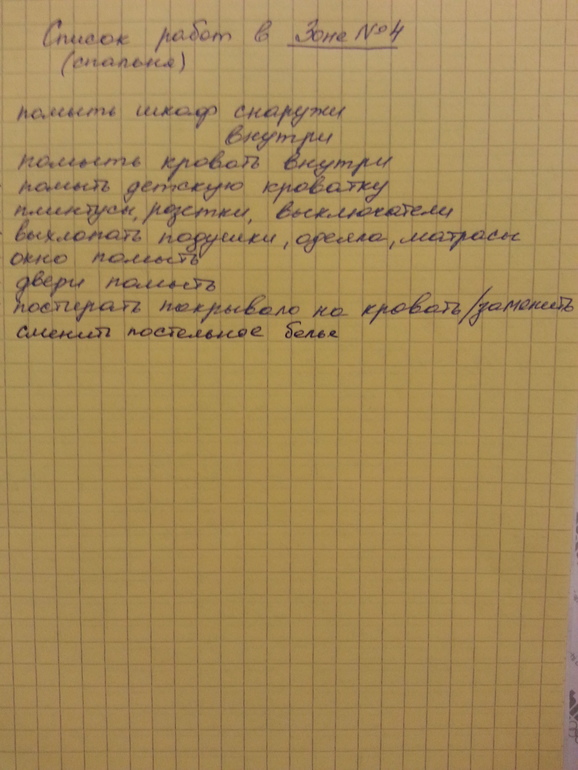 Список работ в Зоне №4
(спальня)
помыть шкаф снаружи
внутри
помыть кровать внутри
помыть детскую кроватку
плинтусы, розетки, выключатели
выхлопать подушки, одеяла, матрасы
окно помыть
двери помыть
постирать покрывало на кровать/заменить
сменить постельное белье